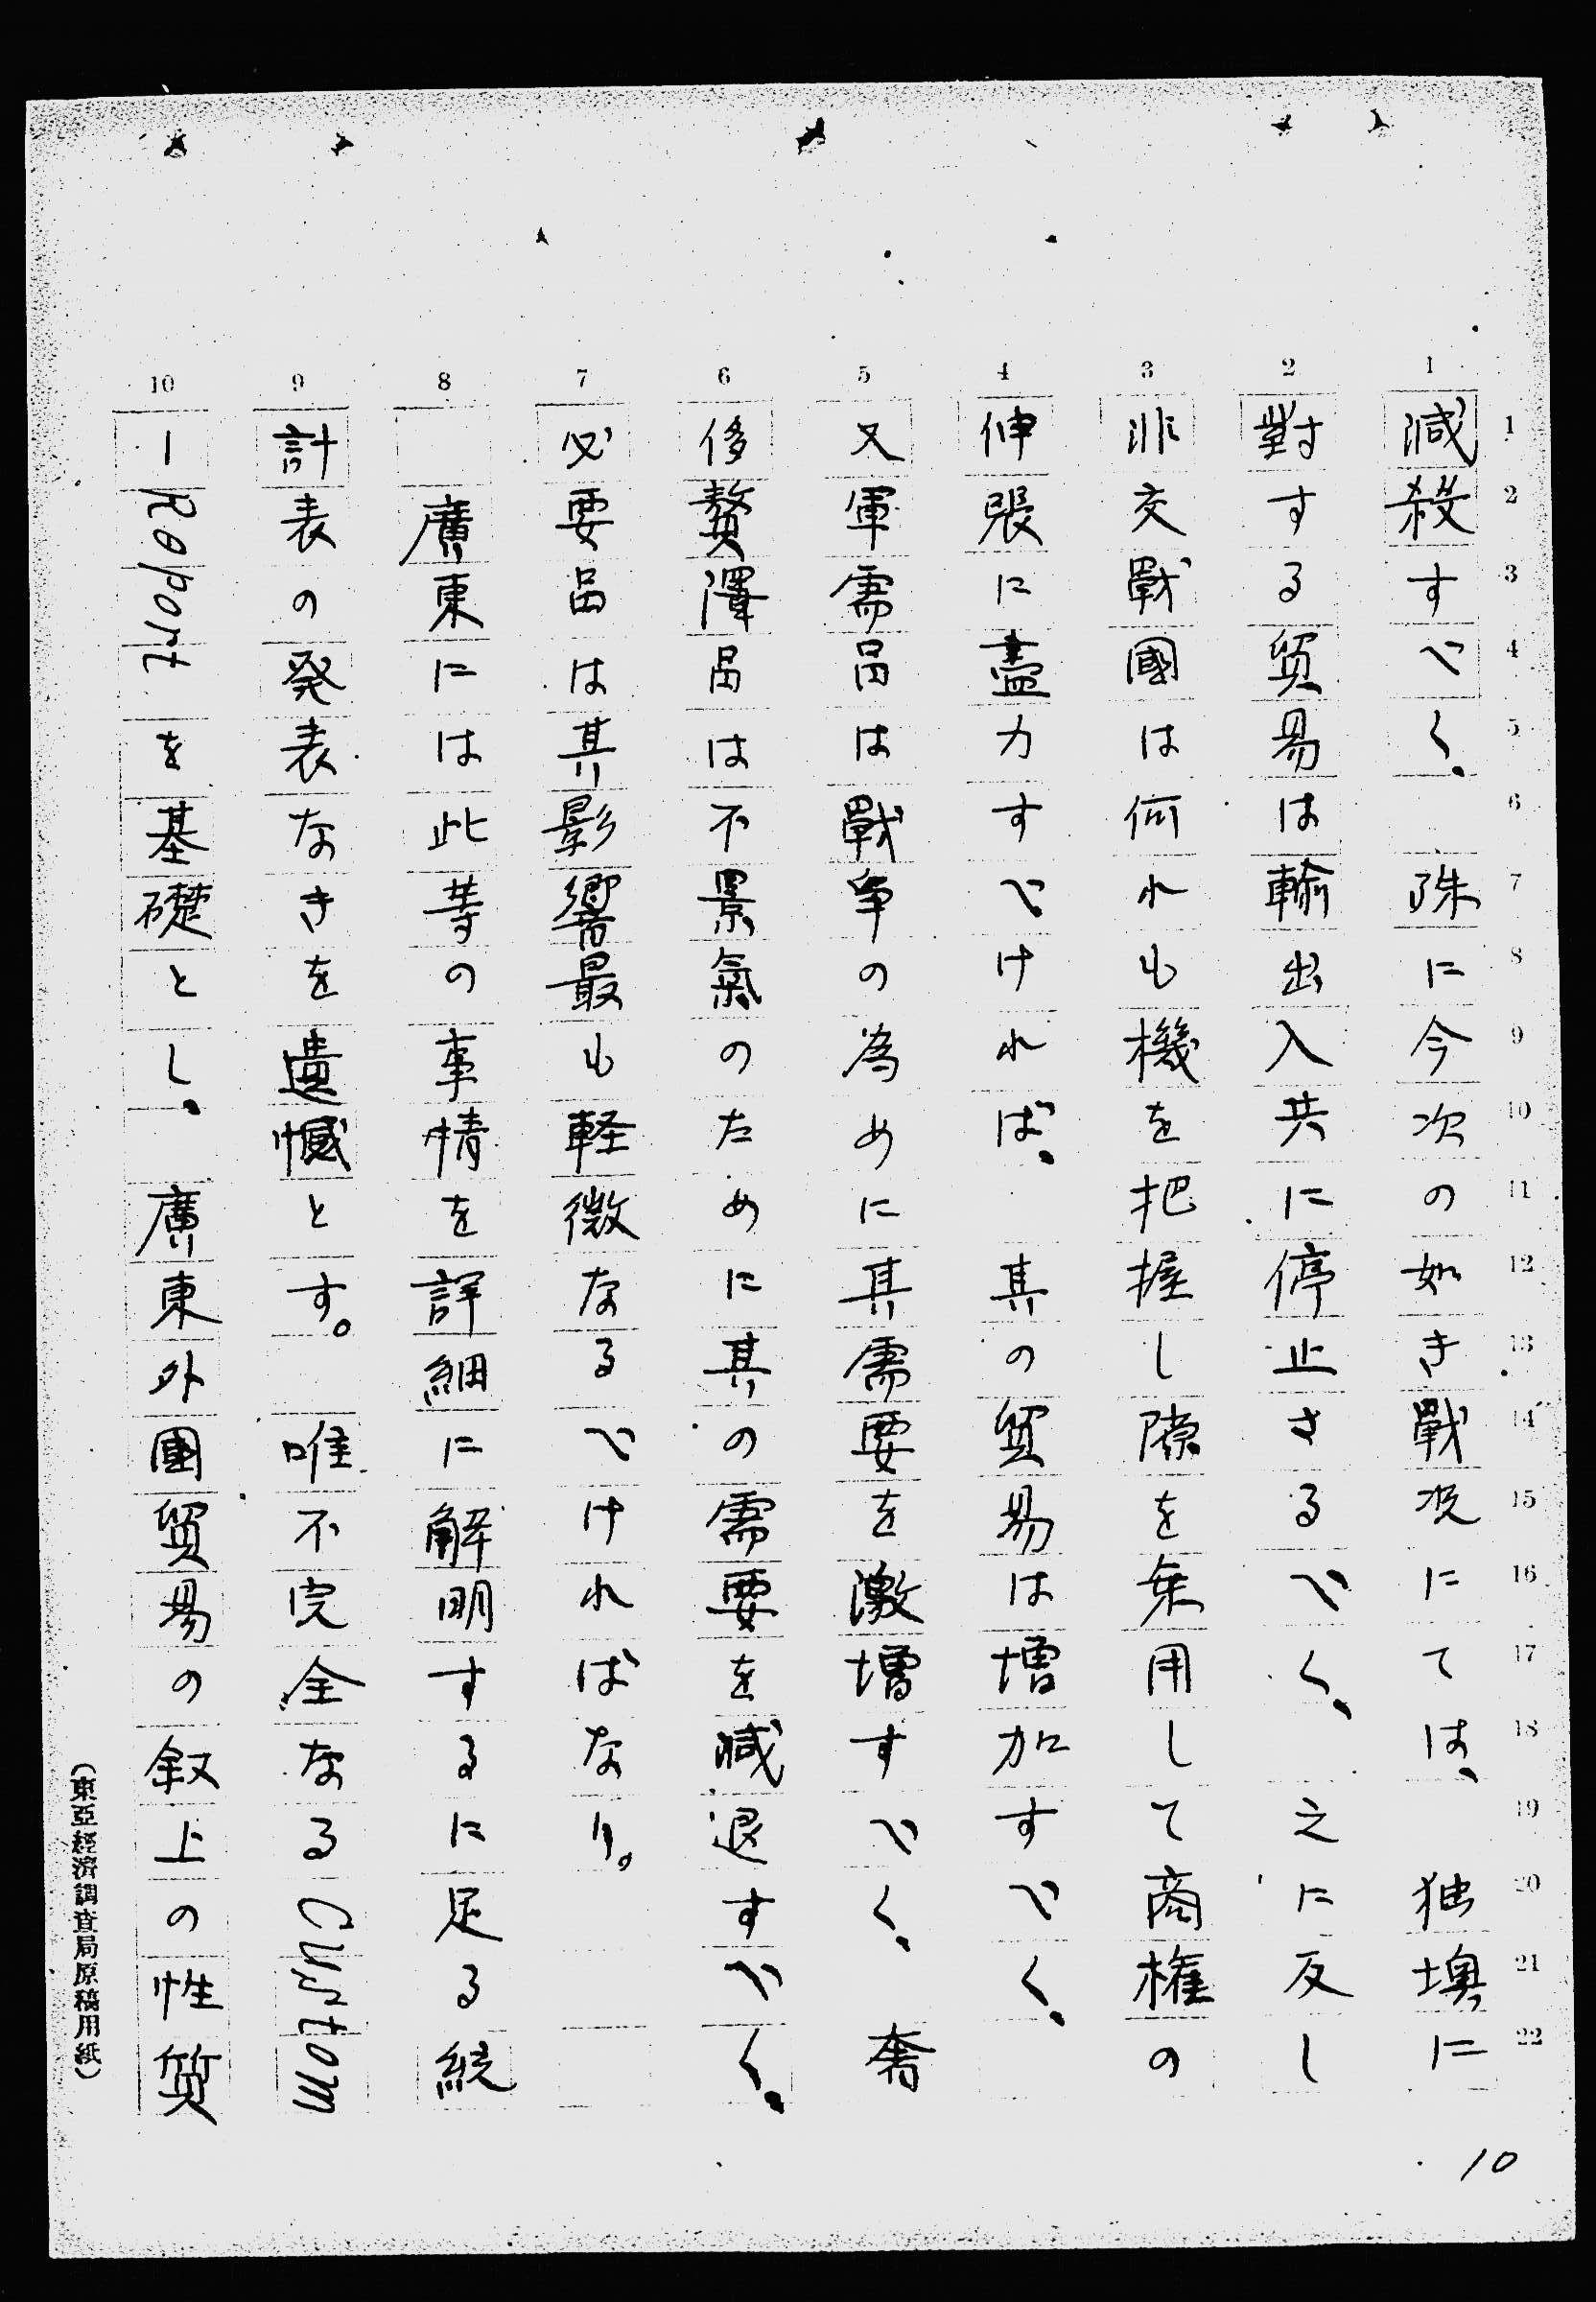 減殺すべく、殊に今次の如き戰况にては、独墺に
對する貿易は輸出入共に停止さるべく、之に反し
非交戰國は何れも機を把握し隙を乗用して商権の
伸張に盡力すべければ、其の貿易は増加すべく、
又軍需品は戰争の為めに其需要を激増すべく、奢
侈贅澤品は不景氣のために其の需要を減退すべく、
必要品は其影響最も軽微なるべければなり。
廣東には此等の事情を詳細に解明するに足る統
計表の発表なきを遺憾とす。唯不完全なるCustom
ーReportを基礎とし、廣東外國貿易の叙上の性質
(東亞經濟調査局原稿用紙)
1 2 3 4 5 6 7 8 9 10
1 2 3 4 5 6 7 8 9 10 11 12 13 14 15 16 17 18 19 20 21 22
10